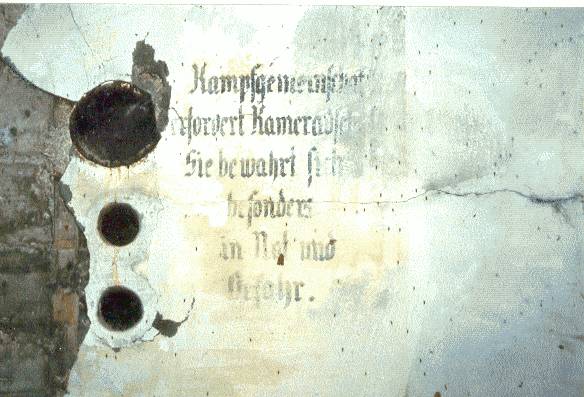 Kampfgemeinschaft
erfordert Kameradschaft
Sie bewahrt sich
besonders
in Not und
Gefahr.